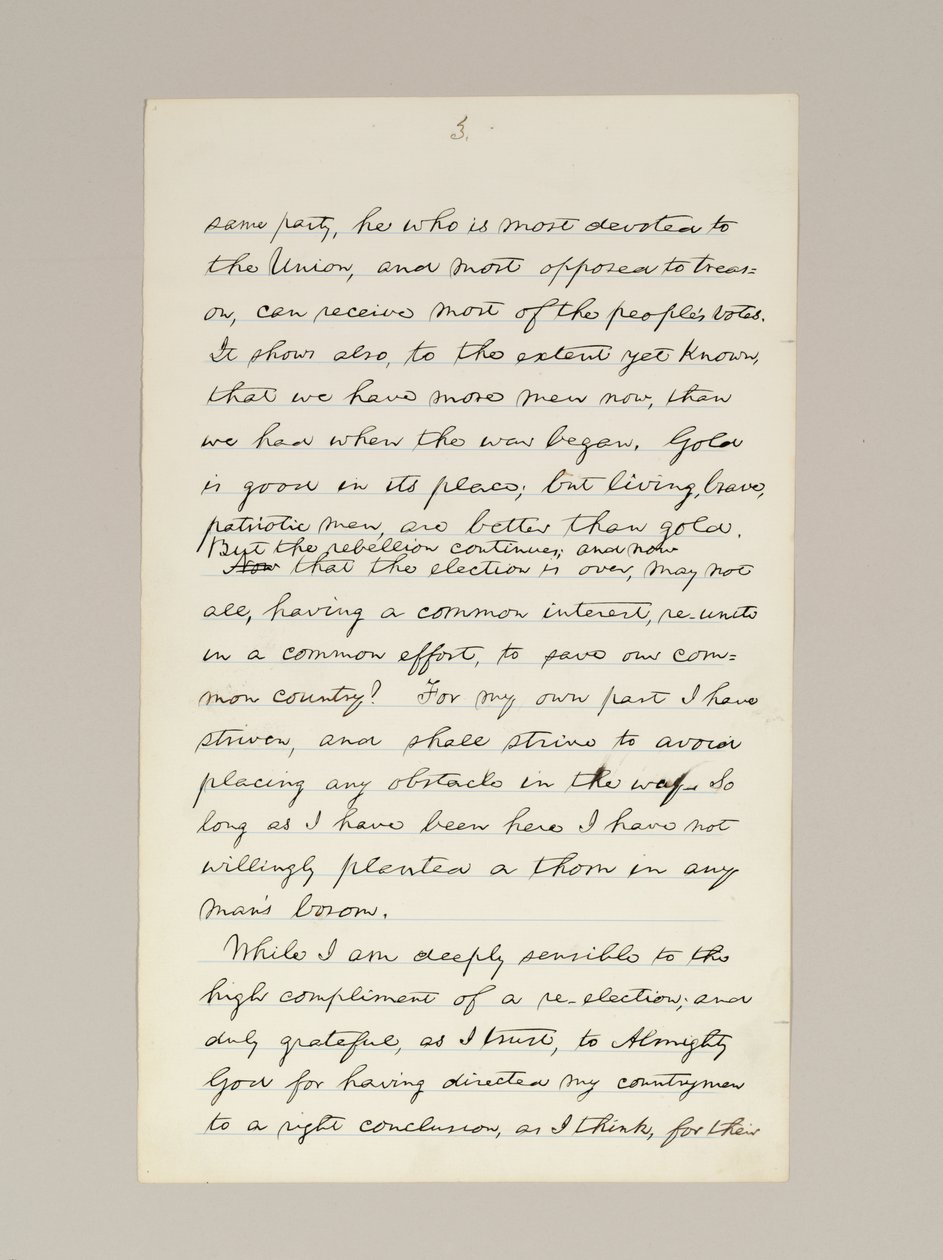 3.
same party, he who is most devoted to
the Union, and most opposed to treas=
on, can receive most of the people's votes.
It shows also, to the extent yet known,
that we have more men now, than
we had when the war began. Gold
is good in its place; but living, brave,
patriotic men, are better than gold.
But the rebellion continues; and now
Now that the election is over, may not
all, having a common interest, re-unite
in a common effort, to save our com=
mon country? For my own part I have
striven, and shall strive to avoid
placing any obstacle in the way. So
long as I have been here I have not
willingly planted a thorn in any
man's bosom.
While I am deeply sensible to the
high compliment of a re-election; and
duly grateful, as I trust, to Almighty
God for having directed my countrymen
to a right conclusion, as I think, for their